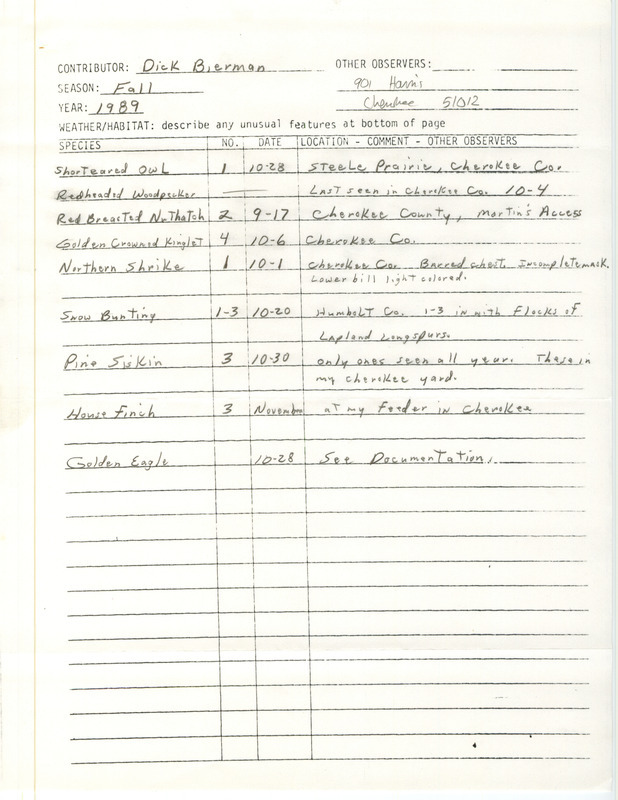 CONTRIBUTOR: Dick Bierman OTHER OBSERVERS:
SEASON: Fall 901 Harris
YEAR: 1989 Cherokee 51012
WEATHER/HABITAT: describe any unusual features at bottom of page
SPECIES NO. DATE LOCATION - COMMENT - OTHER OBSERVERS
Shorteared Owl 1 10-28 Steele Prairie, Cherokee Co.
Redheaded Woodpecker — Last seen in Cherokee Co. 10-4
Red Breasted Nuthatch 2 9-17 Cherokee County, Martin's Access
Golden Crowned Kinglet 4 10-6 Cherokee Co.
Northern Shrike 1 10-1 Cherokee Co. Barred chest, Incomplete mask.
Lower bill light colored.
Snow Bunting 1-3 10-20 Humbolt Co. 1-3 in with flocks of
Lapland Longspurs.
Pine Siskin 3 10-30 only ones seen all year. These in
my Cherokee yard.
House Finch 3 November at my feeder in Cherokee
Golden Eagle 10-28 See Documentation.